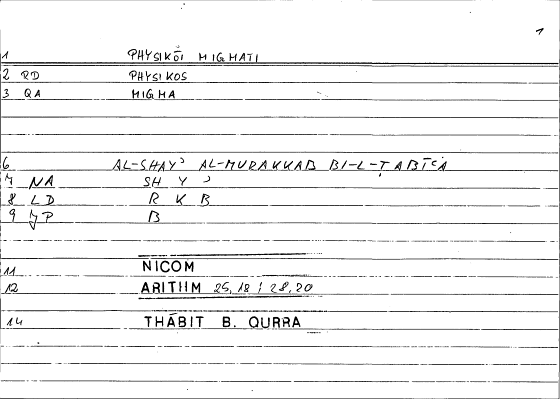 1
1 PHYSIKŌI MIGMATI
2 RD PHYSIKOS
3 QA MIGMA
6 AL-SHAYʾ AL-MURAKKAB BI-L-ṬABĪʿA
7 NA SH Y ʾ
8 LD R K B
9 JP B
11 NICOM
12 ARITHM 25,18 / 28,20
14 THĀBIT B. QURRA